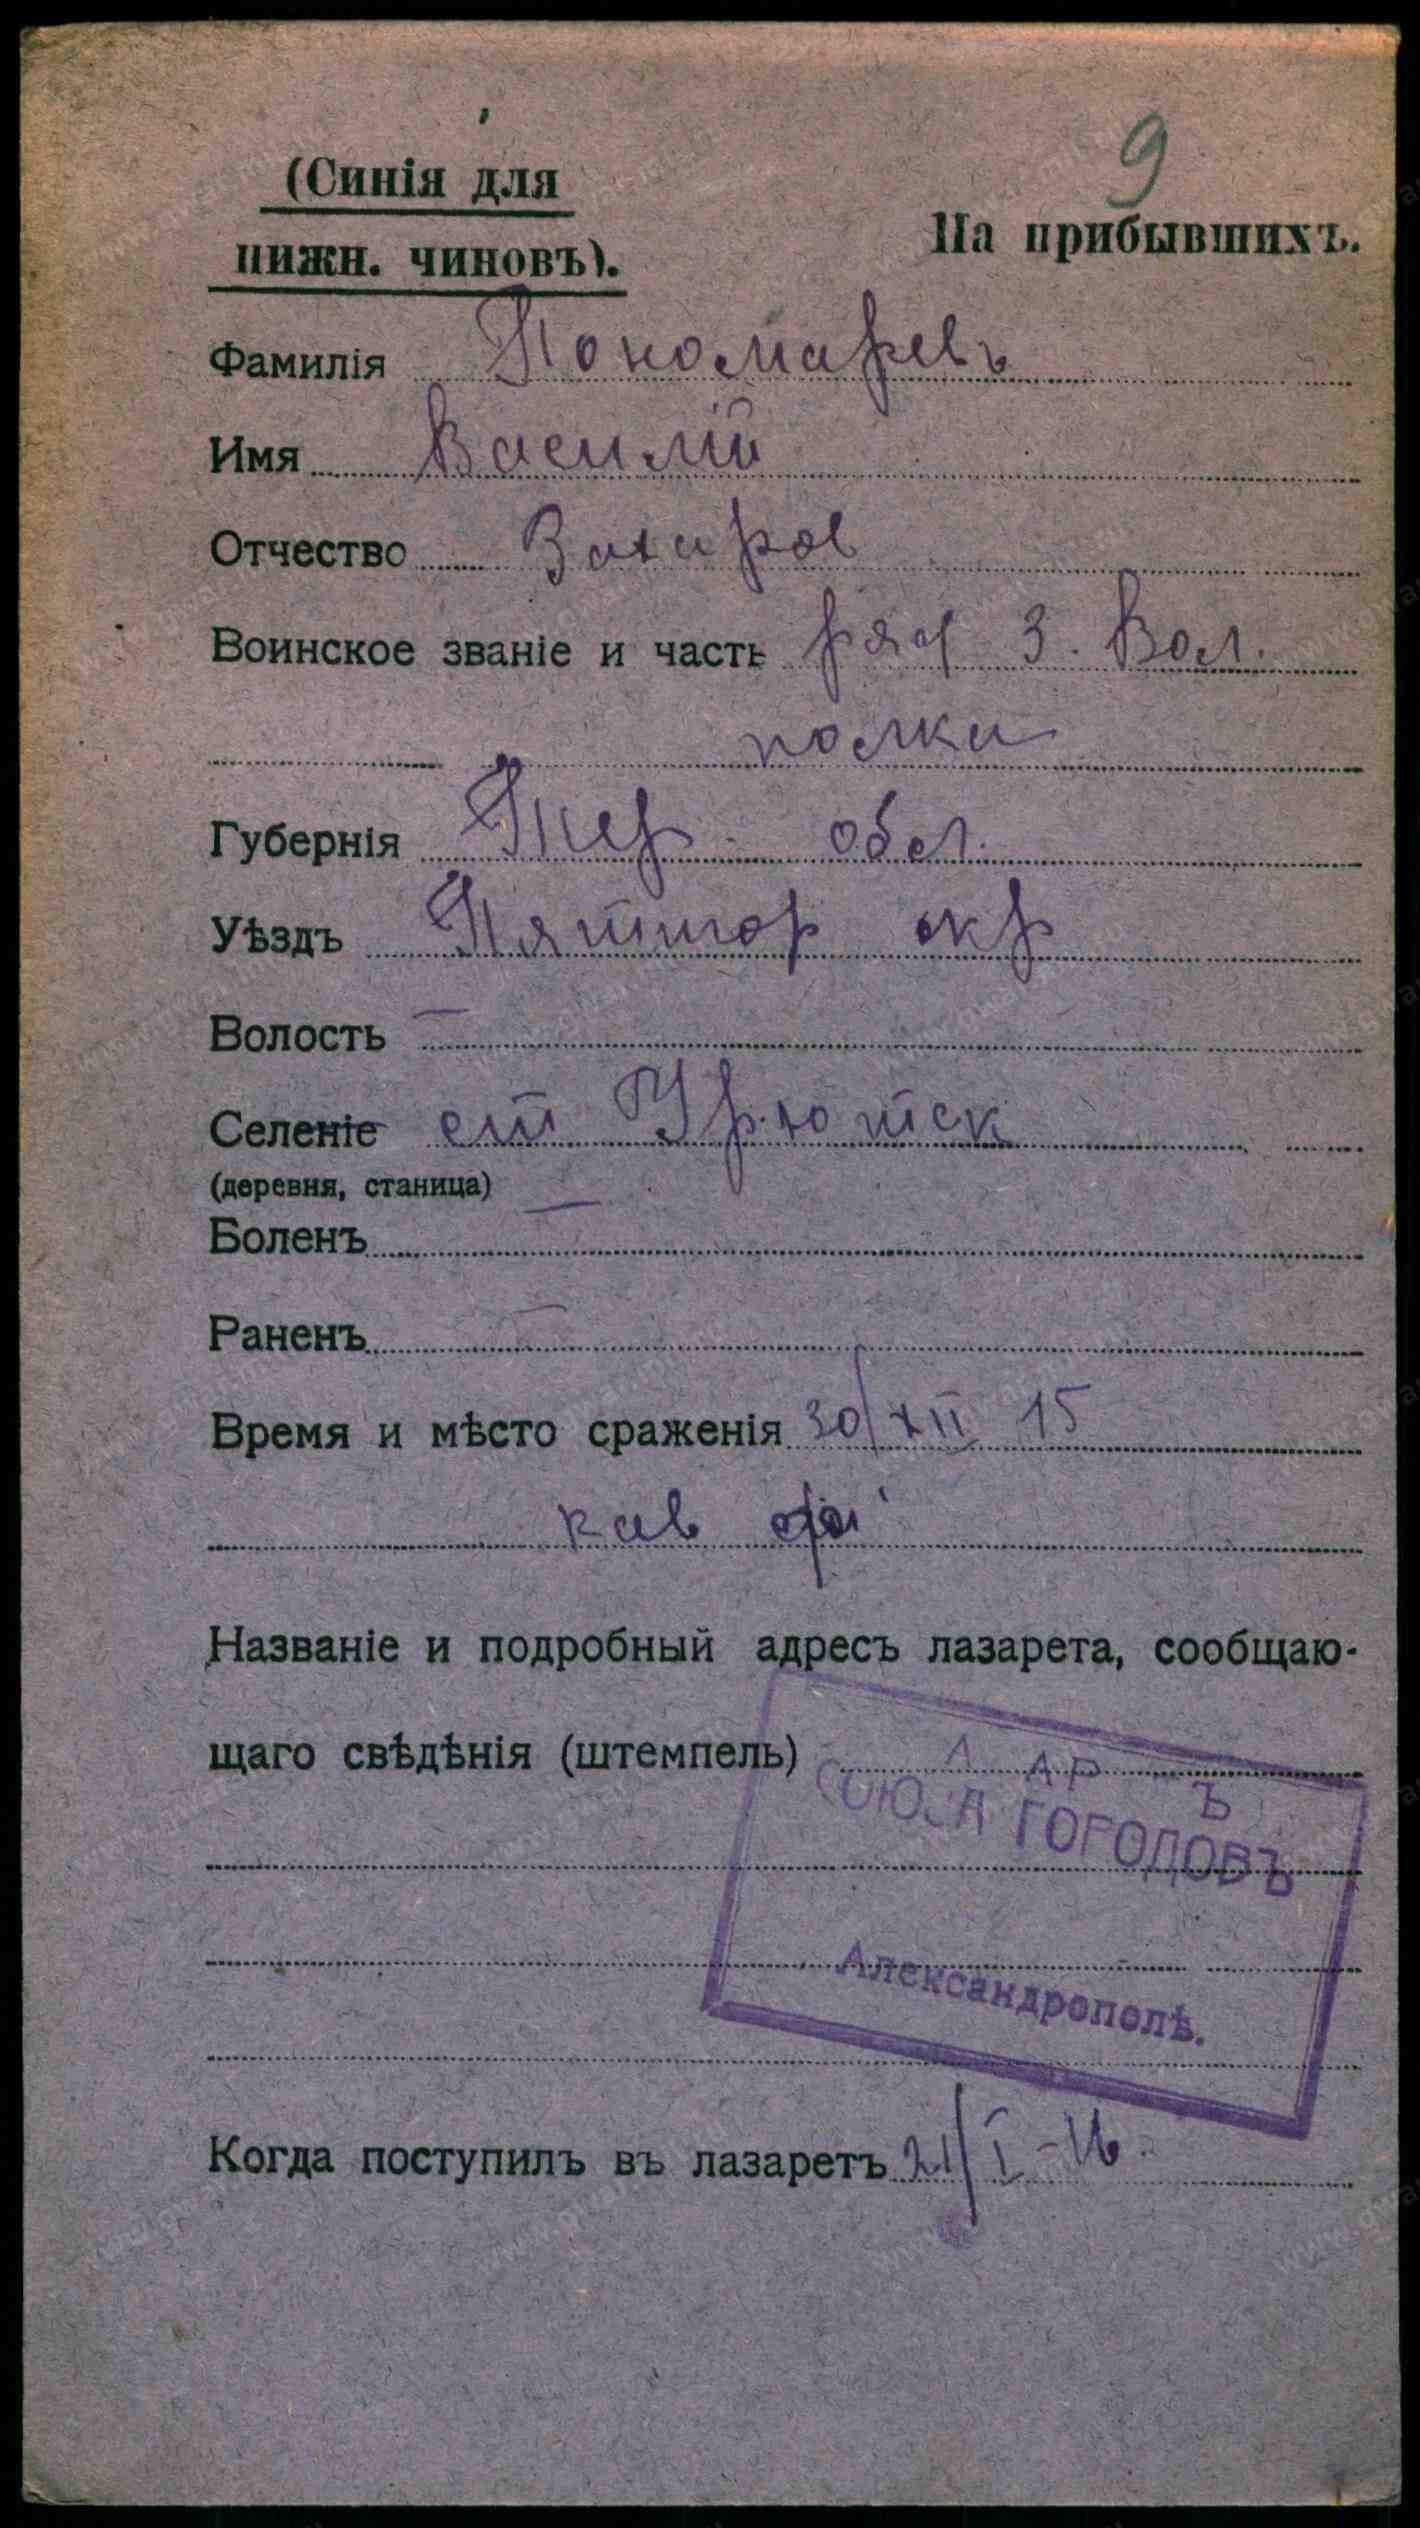 9
(Синія для
нижн. чиновъ).
На прибывшихъ.
Фамилія Пономаревъ
Имя Василій
Отчество Захаров
Воинское званіе и часть ряд 3. Вол.
полка
Губернія Тер. обл.
Уѣздъ Пятигор окр
Волость —
Селеніе ст Урютск
(деревня, станица)
Боленъ —
Раненъ —
Время и мѣсто сраженія 30/XII 15
кав
Названіе и подробный адресъ лазарета, сообщаю-
щаго свѣдѣнія (штемпель)
СОЮЗА ГОРОДОВЪ
Александрополѣ.
Когда поступилъ въ лазаретъ 21/I-16.